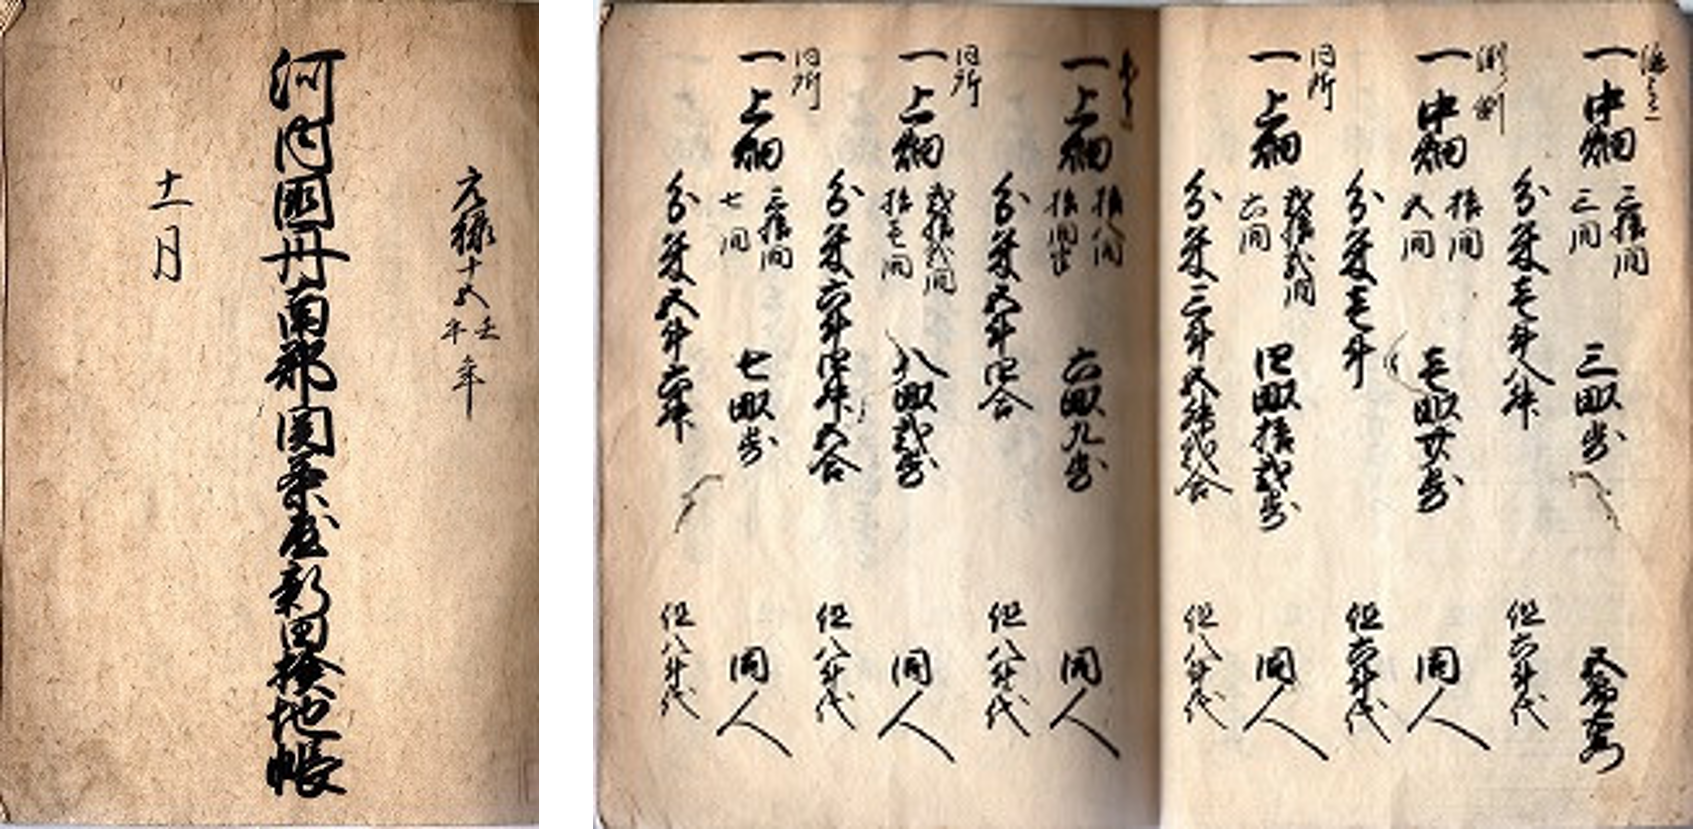 元禄十五壬午年
河内國丹南郡関茶屋新田検地帳
十一月
一中畑 三拾間 三間 三畝歩
分米壱斗八升 但六斗代
一中畑 拾間 五間 壱畝廿歩 同人
分米壱斗 但六斗代
同所
一上畑 弐拾弐間 六間 四畝拾弐歩 同人
分米三斗五升弐合 但八斗代
一上畑 拾八間 拾間半 六畝九歩 同人
分米五斗四合 但八斗代
同所
一上畑 弐拾弐間 拾壱間 八畝弐歩 同人
分米六斗四升五合 但八斗代
同所
一上畑 三拾間 七間 七畝歩 同人
分米五斗六升 但八斗代